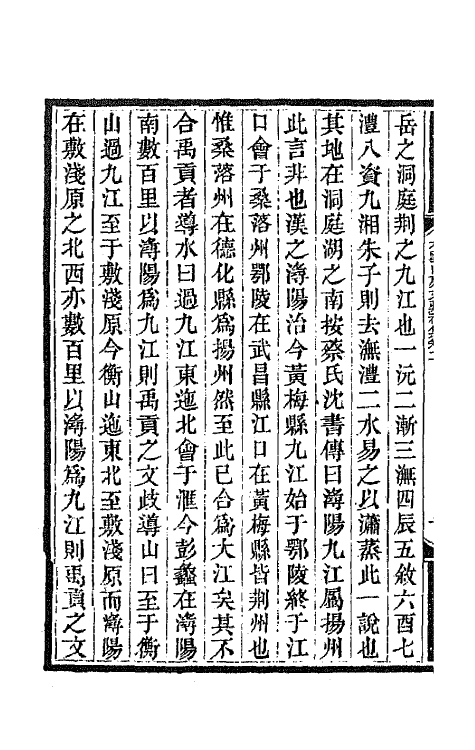 岳之洞庭荆之九江也一沅二漸三潕四辰五敘六酉七
澧八資九湘朱子則去潕澧二水易之以瀟蒸此一說也
其地在洞庭湖之南按蔡氏沈書傳曰潯陽九江屬揚州
此言非也漢之潯陽治今黃梅縣九江始于鄂陵終于江
口會于桑落州鄂陵在武昌縣江口在黃梅縣皆荆州也
惟桑落州在德化縣爲揚州然至此已合爲大江矣其不
合禹貢者導水曰過九江東迤北會于滙今彭蠡在潯陽
南數百里以潯陽爲九江則禹貢之文歧導山曰至于衡
山過九江至于敷淺原今衡山迤東北至敷淺原而潯陽
在敷淺原之北西亦數百里以潯陽爲九江則禹貢之文